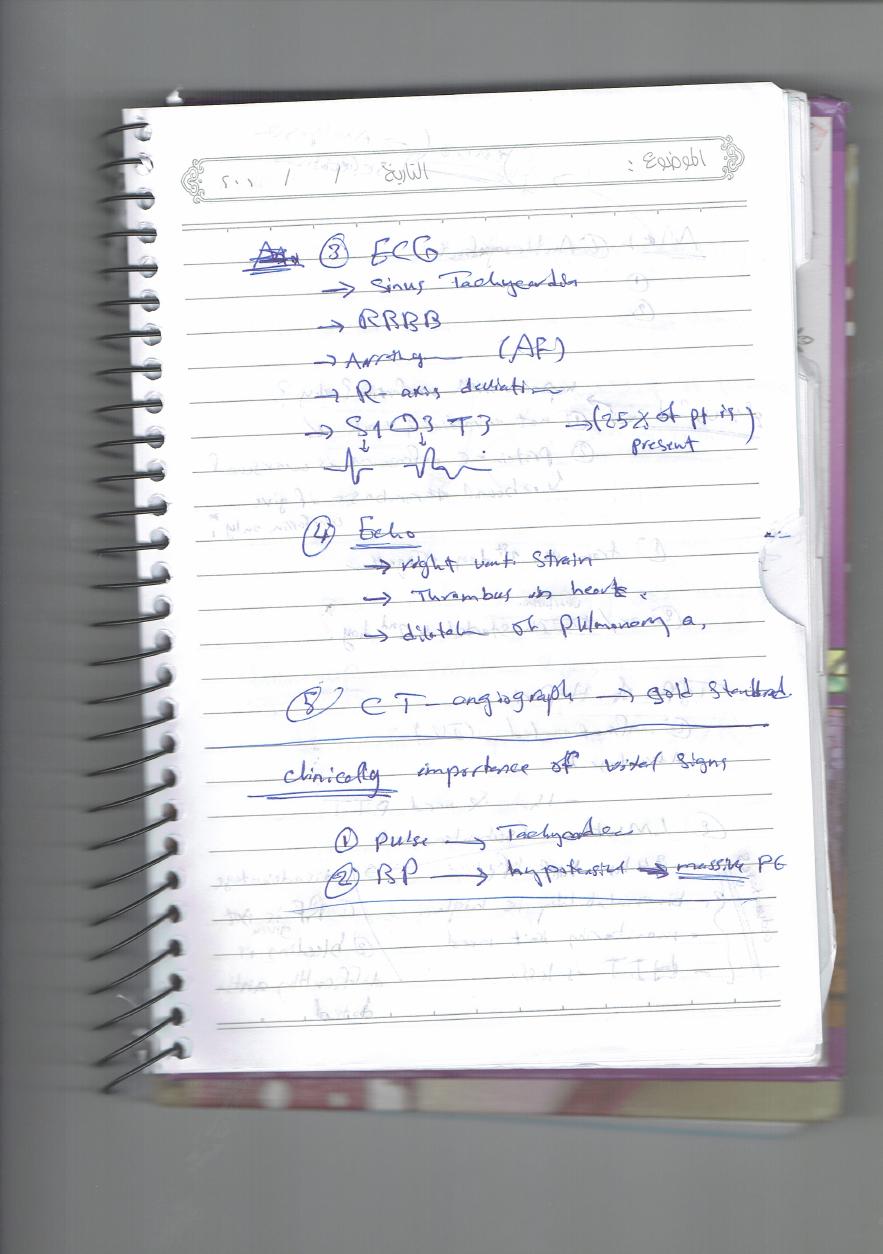 الموضوع : التاريخ / / ٢٠٠
③ ECG
→ Sinus Tachycardia
→ RBBB
→ Arrthy (AF)
→ R- axis deviation
→ S1 Q3 T3 → (25% of pt is present)
④ Echo
→ right vent. Strain
→ Thrombus in heart.
→ dilatation of pulmonary a.
⑤ CT-angiograph → gold standard.
clinically importance of vital signs
① pulse → Tachycardia
② BP → hypotension → massive PE